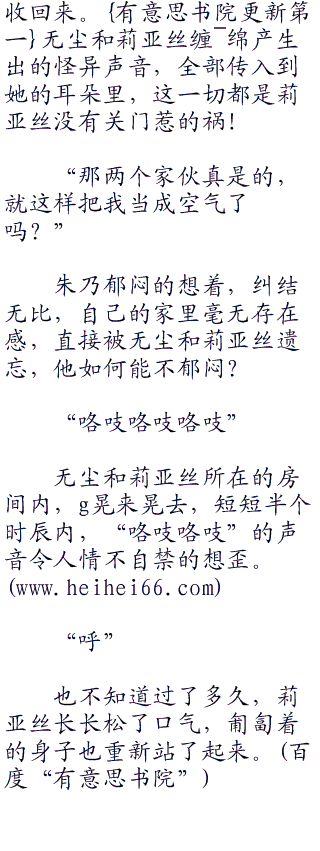 收回来。{有意思书院更新第
一}无尘和莉亚丝缠¯绵产生
出的怪异声音，全部传入到
她的耳朵里，这一切都是莉
亚丝没有关门惹的祸！
“那两个家伙真是的，
就这样把我当成空气了
吗？”
朱乃郁闷的想着，纠结
无比，自己的家里毫无存在
感，直接被无尘和莉亚丝遗
忘，他如何能不郁闷？
“咯吱咯吱咯吱”
无尘和莉亚丝所在的房
间内，g晃来晃去，短短半个
时辰内，“咯吱咯吱”的声
音令人情不自禁的想歪。
(www.heihei66.com)
“呼”
也不知道过了多久，莉
亚丝长长松了口气，匍匐着
的身子也重新站了起来。(百
度“有意思书院”)